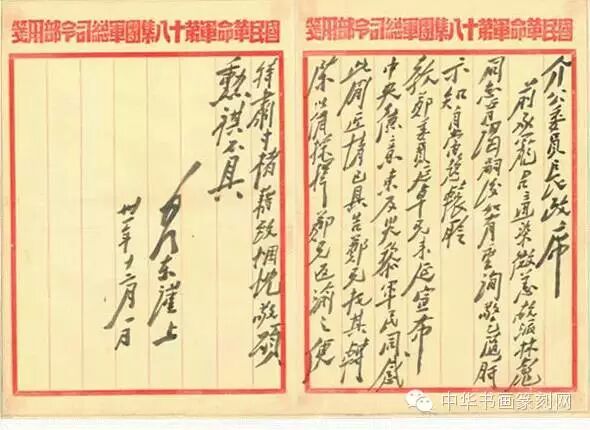 國民革命軍第十八集團軍總司令部用箋
介公委員長政席
前承寵召適染微恙故派林彪
同志晋謁嗣後如有垂詢敬乞隨時
示知自當趨轅聆
教鄭委員延卓兄來延宣布
中央德意惠及災黎軍民同感
此間近情已具告鄭兄托其轉
陳以備採擇鄭兄返渝之便
國民革命軍第十八集團軍總司令部用箋
特肅寸楮藉致悃忱敬頌
勳祺不具
毛澤東謹上
卅一年十二月一日
中华书画篆刻网